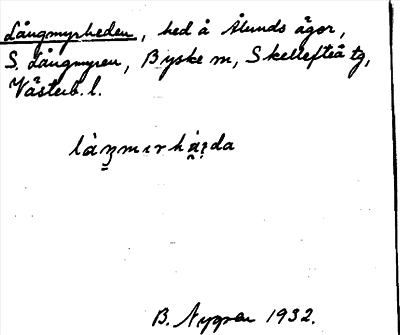 Långmyrheden, hed å Ålunds ägor,
S. Långmyren, Byske sn, Skellefteå tg,
Västerb. l.
B. Nygren 1932.